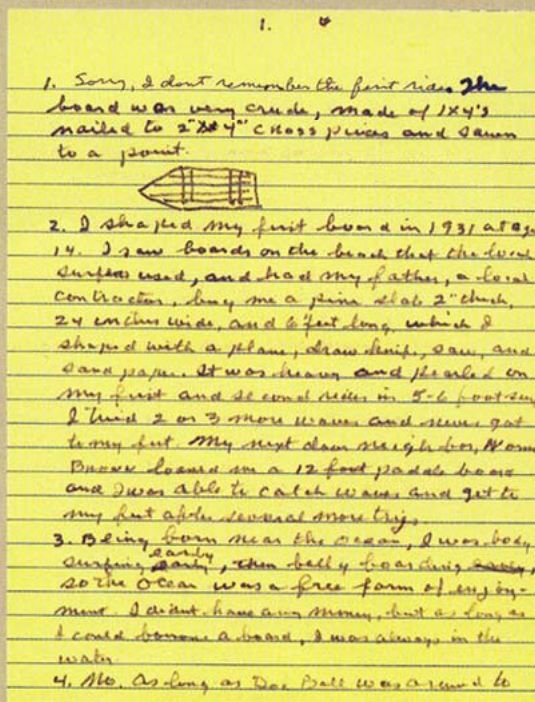 1.
1. Sorry, I dont remember the first ride. The
board was very crude, made of 1X4's
nailed to 2"X4" cross pieces and sawn
to a point.
2. I shaped my first board in 1931 at age
14. I saw boards on the beach that the local
surfers used, and had my father, a local
contractor, buy me a pine slab 2" thick,
24 inches wide, and 6 feet long, which I
shaped with a plane, draw knife, saw, and
sand paper. It was heavy and pearled on
my first and second rides in 5-6 foot surf
I tried 2 or 3 more waves and never got
to my feet. My next door neighbor,
Brown loaned me a 12 foot paddle board
and I was able to catch waves and get to
my feet after several more trys.
3. Being born near the ocean, I was body
surfing early, then belly boarding
so the Ocean was a free form of enjoy-
ment. I didnt have any money, but as long as
I could borrow a board, I was always in the
water.
4. No. As long as Doc Ball was around to